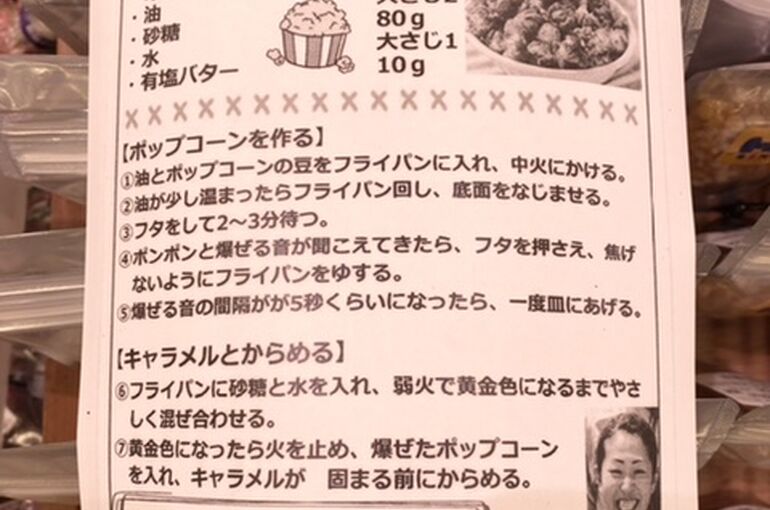 ・油
大さじ2
・砂糖
80g
・水
大さじ1
・有塩バター
10g
【ポップコーンを作る】
①油とポップコーンの豆をフライパンに入れ、中火にかける。
②油が少し温まったらフライパン回し、底面をなじませる。
③フタをして2〜3分待つ。
④ポンポンと爆ぜる音が聞こえてきたら、フタを押さえ、焦げ
ないようにフライパンをゆする。
⑤爆ぜる音の間隔がが5秒くらいになったら、一度皿にあげる。
【キャラメルとからめる】
⑥フライパンに砂糖と水を入れ、弱火で黄金色になるまでやさ
しく混ぜ合わせる。
⑦黄金色になったら火を止め、爆ぜたポップコーン
を入れ、キャラメルが 固まる前にからめる。